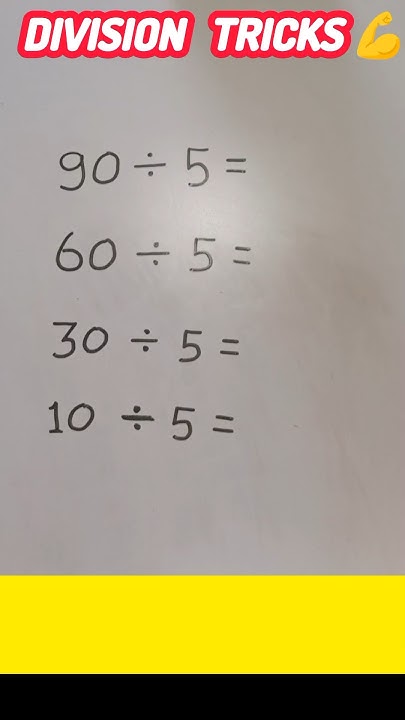 DIVISION TRICKS💪
90 ÷ 5 =
60 ÷ 5 =
30 ÷ 5 =
10 ÷ 5 =